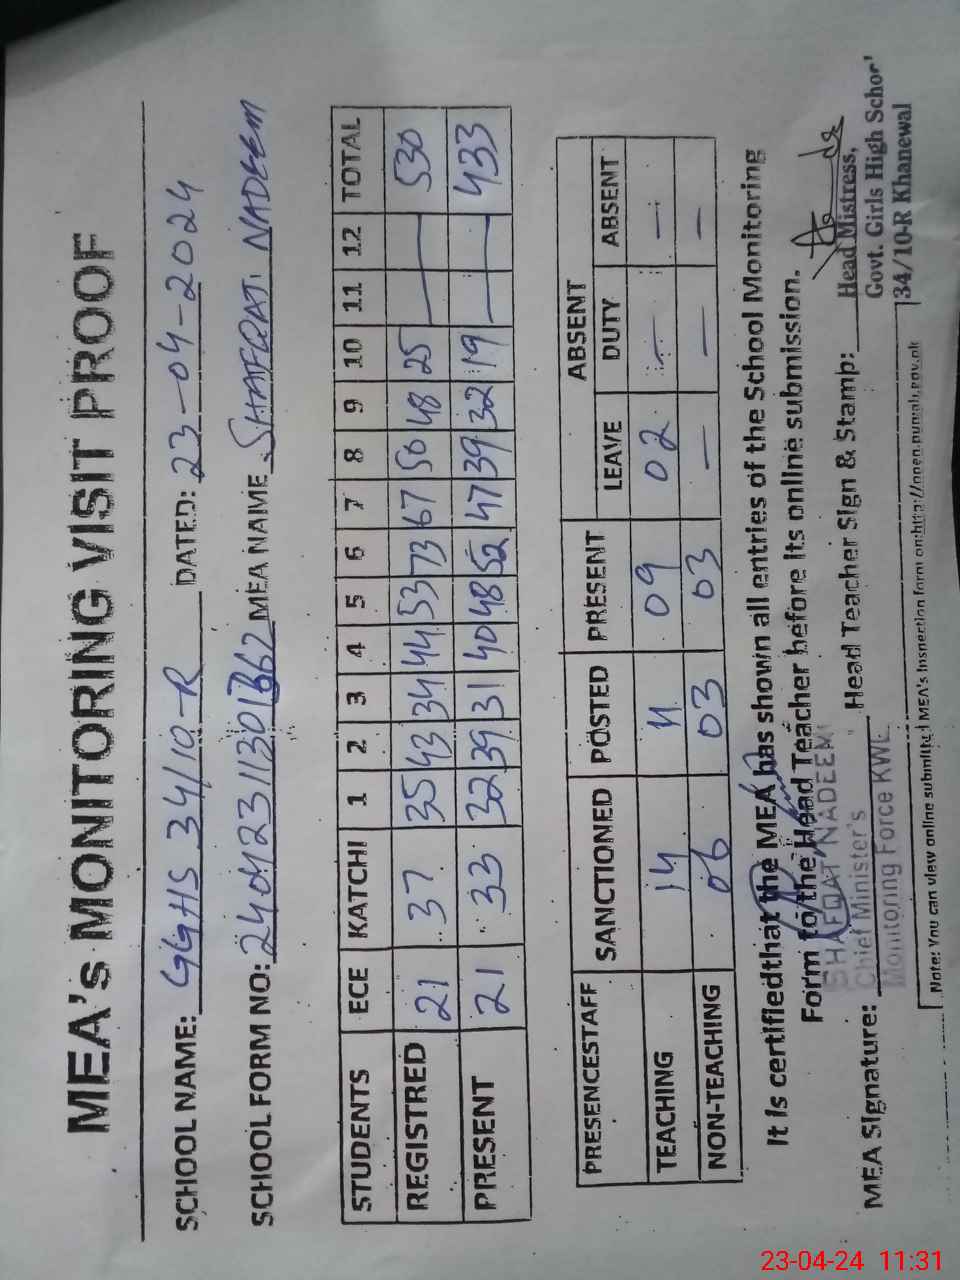 MEA's MONITORING VISIT PROOF
SCHOOL NAME: GGHS 34/10-R DATED: 23-04-2024
SCHOOL FORM NO: MEA NAME SHAFQAT NADEEM
STUDENTS ECE KATCHI 1 2 3 4 5 6 7 8 9 10 11 12 TOTAL
REGISTRED 21 37 35 43 34 44 53 73 67 50 48 25 — 530
PRESENT 21 33 32 39 31 40 48 52 47 39 32 19 — 433
PRESENCESTAFF SANCTIONED POSTED PRESENT ABSENT
LEAVE DUTY ABSENT
TEACHING 14 11 09 02 — —
NON-TEACHING 06 03 03 — — —
It Is certifiedthat the MEA has shown all entries of the School Monitoring
Form to the Head Teacher before its online submission.
SHAFQAT NADEEM
Chief Minister's
Monitoring Force KWL
MEA Signature: Head Teacher Sign & Stamp:
Head Mistress,
Govt. Girls High School
34/10-R Khanewal
Note: You can view online submitted MEA's Inspection form on:http://open.punjab.gov.pk
23-04-24 11:31